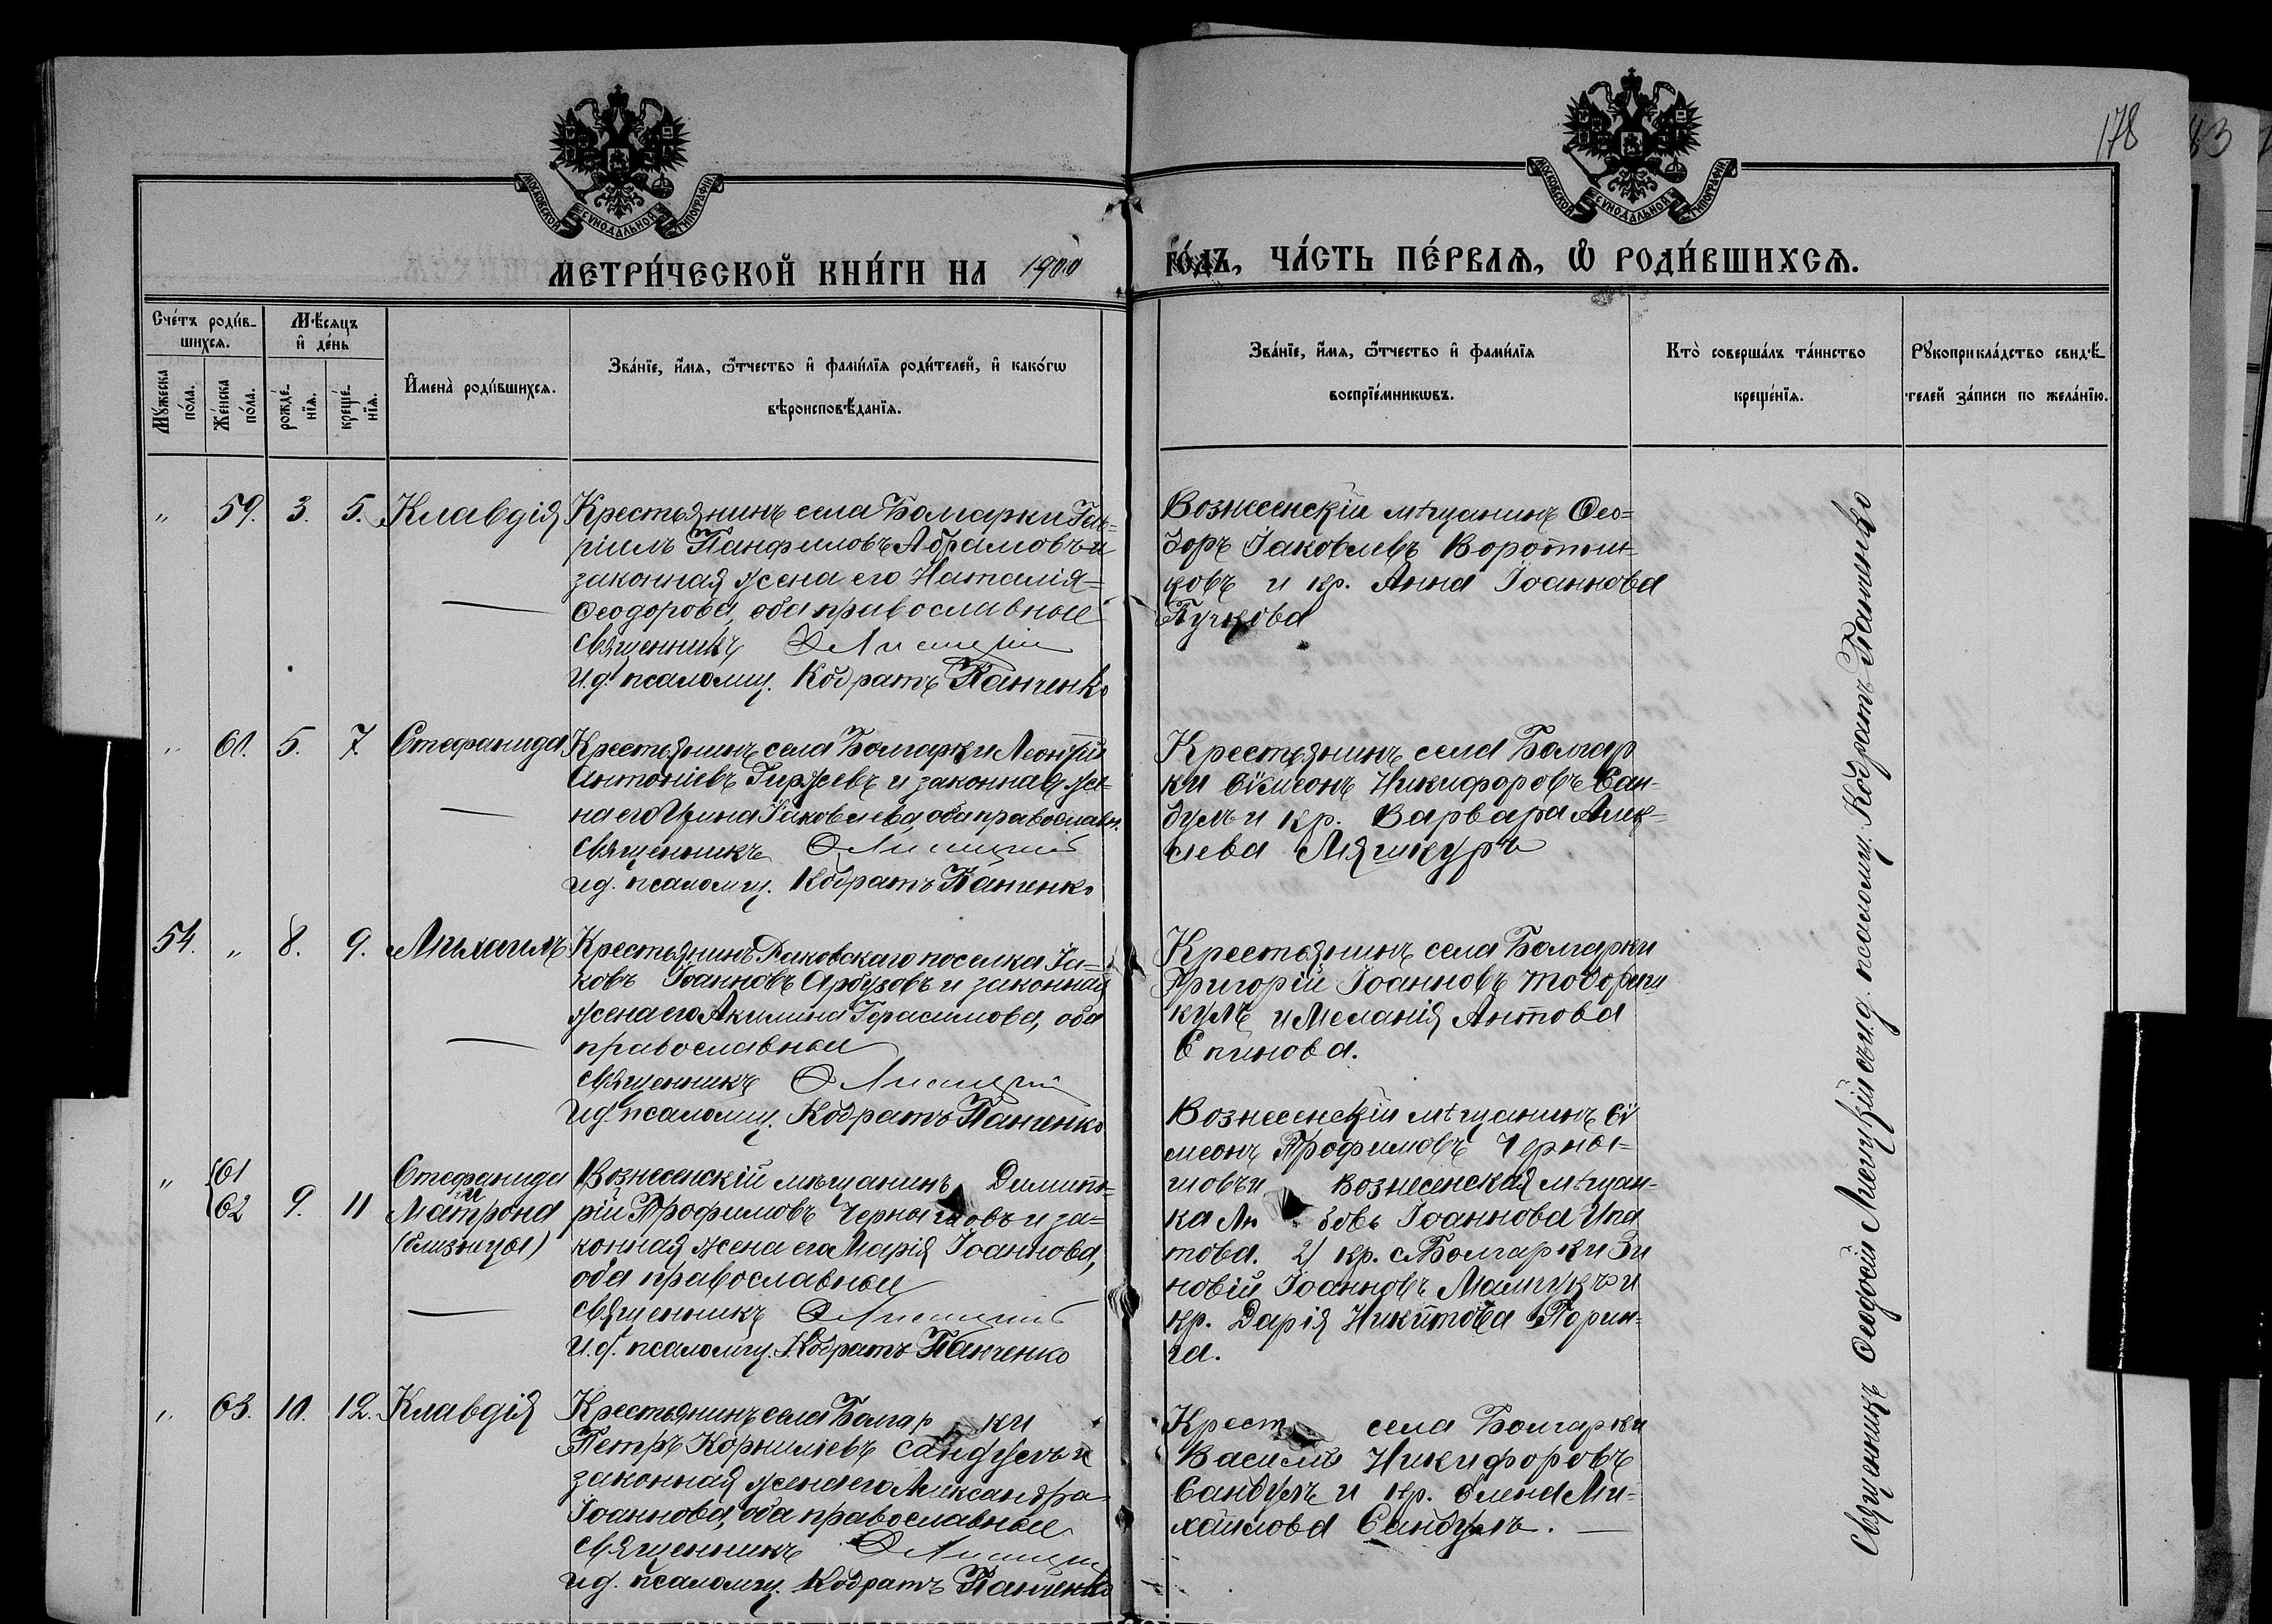 178
МОСКОВСКОЙ СѴНОДАЛЬНОЙ ТИПОГРАФІИ
МОСКОВСКОЙ СѴНОДАЛЬНОЙ ТИПОГРАФІИ
МЕТРИ́ЧЕСКОЙ КНИ́ГИ НА 1900 ГО́ДЪ, ЧА́СТЬ ПЕ́РВАѦ, Ѡ РОДИ́ВШИХСѦ.
Сче́тъ роди́в-
шихсѧ.
Мꙋжеска по́ла.
Же́нска по́ла.
Мѣ́сяцъ и҆ де́нь
рожде́-нїѧ.
креще́-нїѧ.
И҆мена̀ роди́вшихсѧ.
Зва́нїе, и҆́мѧ, ѻ҆́тчество и҆ фами́лїѧ роди́телей, и҆ како́гѡ
вѣроисповѣ́данїѧ.
Зва́нїе, и҆́мѧ, ѻ҆́тчество и҆ фами́лїѧ
воспрїе́мникѡвъ.
Кто̀ соверша́лъ та́инство
креще́нїѧ.
Рꙋкоприкла́дство свидѣ́-
телей за́писи по жела́нїю.
" 59. 3. 5. Клавдія
Крестьянинъ села Болгарки Гав-
ріилъ Панфиловъ Абрамовъ и
законная жена его Наталія
Ѳеодорова, оба православные
Священникъ Ѳ Лисицкій
И.д. псаломщ. Кодратъ Панченко
Вознесенскій мѣщанинъ Ѳео-
доръ Іаковлевъ Воротни-
ковъ и кр. Анна Іоаннова
Пучкова
" 60. 5. 7. Стефанида
Крестьянинъ села Болгарки Леонтій
Антоніевъ Гиржевъ и законная же-
на его Ирина Іаковлева, оба православн.
Священникъ Ѳ Лисицкій
И.д. псаломщ. Кодратъ Панченко
Крестьянинъ села Болгар
ки Сѵмеонъ Никифоровъ Сан-
дулъ и кр. Варвара Алек-
сіева Мяшкуръ
54. " 8. 9. Михаилъ
Крестьянинъ Раковскаго поселка Іа-
ковъ Іоанновъ Арбузовъ и законная
жена его Акилина Герасимова, оба
православные
Священникъ Ѳ Лисицкій
И.д. псаломщ. Кодратъ Панченко
Крестьянинъ села Болгарки
Григорій Іоанновъ Тодораш
кулъ и Меланія Антова
Спинова.
" 61 62 9. 11 Стефанида
и
Матрона
(близнецы)
Вознесенскій мѣщанинъ Димит-
рій Трофимовъ Чернышовъ и за-
конная жена его Марія Іоаннова,
оба православные
Священникъ Ѳ Лисицкій
И.д. псаломщ. Кодратъ Панченко
Вознесенскій мѣщанинъ Сѵ
меонъ Трофимовъ Черны-
шовъ и Вознесенская мѣщан-
ка Лю бовь Іоаннова Ипа
това. 2) кр. с. Болгарки Зи
новій Іоанновъ Мамчукъ и
кр. Дарія Никитова Порин-
га.
" 63. 10. 12. Клавдія
Крестьянинъ села Болгар ки
Петръ Корниліевъ Сандулъ и
законная жена его Александра
Іоаннова, оба православные
Священникъ Ѳ Лисицкій
И.д. псаломщ. Кодратъ Панченко
Крест села Болгарки
Василій Никифоровъ
Сандулъ и кр. Елена Ми-
хаилова Сандулъ.
Священникъ Ѳеодосій Лисицкій съ и.д. псаломщ. Кодратъ Панченко